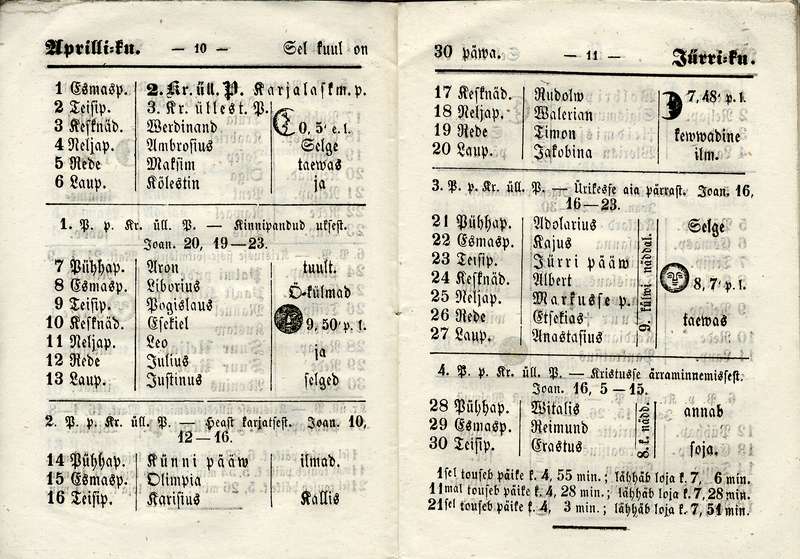 Aprilli-ku. — 10 — Sel kuul on
1 Esmasp. 2. Kr. üll. P. Karjalaskm. p.
2 Teisip. 3. Kr. üllest. P.
3 Kesknäd. Werdinand 0, 5′ e. l.
4 Neljap. Ambrosius Selge
5 Rede Maksim taewas
6 Laup. Kölestin ja
1. P. p. Kr. üll. P. — Kinnipandud uksest.
Joan. 20, 19—23.
7 Pühhap. Aron tuult.
8 Esmasp. Liborius Ö-külmad
9 Teisip. Pogislaus
10 Kesknäd. Esekiel 9, 50′ p. l.
11 Neljap. Leo
12 Rede Julius ja
13 Laup. Justinus selged
2. P. p. Kr. üll. P. — Heast karjatsest. Joan. 10,
12—16.
14 Pühhap. Künni pääw ilmad.
15 Esmasp. Olimpia
16 Teisip. Karisius Kallis
30 päwa. — 11 — Jürri-ku.
17 Kesknäd. Rudolw 7, 48′ p. l.
18 Neljap. Walerian
19 Rede Timon kewwadine
20 Laup. Jakobina ilm.
3. P. p. Kr. üll. P. — Ürikesse aia pärrast. Joan. 16,
16—23.
21 Pühhap. Adolarius Selge
22 Esmasp. Kajus
23 Teisip. Jürri pääw
24 Kesknäd. Albert 8, 7′ p. l.
25 Neljap. Markusse p.
26 Rede Etsekias taewas
27 Laup. Anastasius
9. külwi näddal.
4. P. p. Kr. üll. P. — Kristusse ärraminnemissest.
Joan. 16, 5—15.
28 Pühhap. Witalis annab
29 Esmasp. Reimund
30 Teisip. Erastus soja.
8. k. nädd.
1sel touseb päike k. 4, 55 min.; lähhäb loja k. 7, 6 min.
11mal touseb päike k. 4, 28 min.; lähhäb loja k. 7, 28 min.
21sel touseb päike k. 4, 3 min.; lähhäb loja k. 7, 51 min.